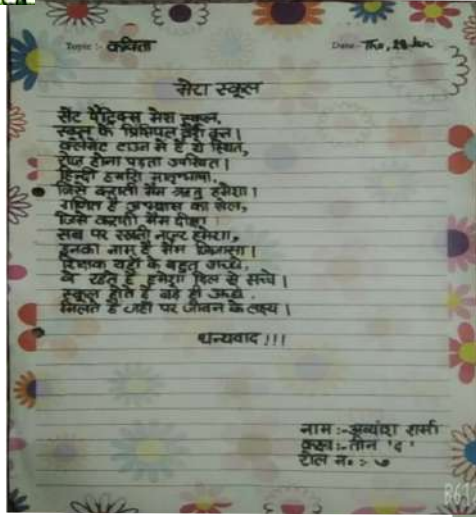 Topic :- कविता
Date:- Thu, 28 Jan
मेरा स्कूल
सेंट पैट्रिक्स मेरा स्कूल,
स्कूल के प्रिंसिपल वैरी कूल।
क्लेमेंट टाउन में है ये स्थित,
रोज होना पड़ता उपस्थित।
हिन्दी हमारी मातृभाषा,
जिसे कराती मैम ऋतु हमेशा।
गणित है अभ्यास का खेल,
जिसे कराती मैम दीक्षा।
सब पर रखती नज़र हमेशा,
इनका नाम है मैम जिज्ञासा।
शिक्षक यहाँ के बहुत अच्छे,
वे रहते है हमेशा दिल से सच्चे।
स्कूल होते है बड़े ही अच्छे,
मिलते है जहाँ पर जीवन के लक्ष्य।
धन्यवाद !!!
नाम :- अव्यांश शर्मा
कक्षा :- तीन 'द'
रोल न० :- ७